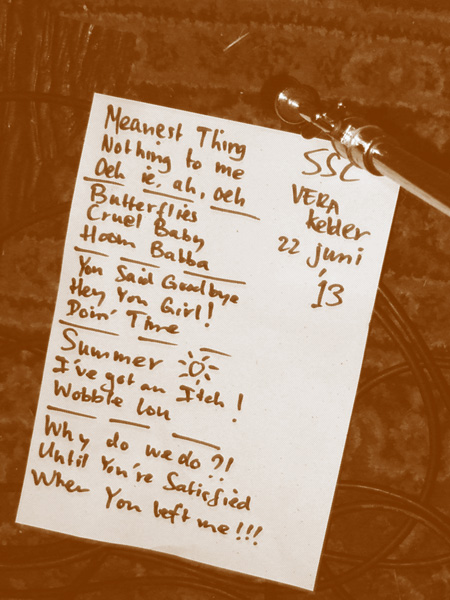 Meanest Thing
Nothing to me
Oeh ie, ah, oeh
Butterflies
Cruel Baby
Hoom Babba
You Said Goodbye
Hey You Girl!
Doin' Time
Summer
I've got an Itch!
Wobble Lou
Why do we do?!
Until You're Satisfied
When You left me!!!
SSC
VERA
Kelder
22 juni
'13